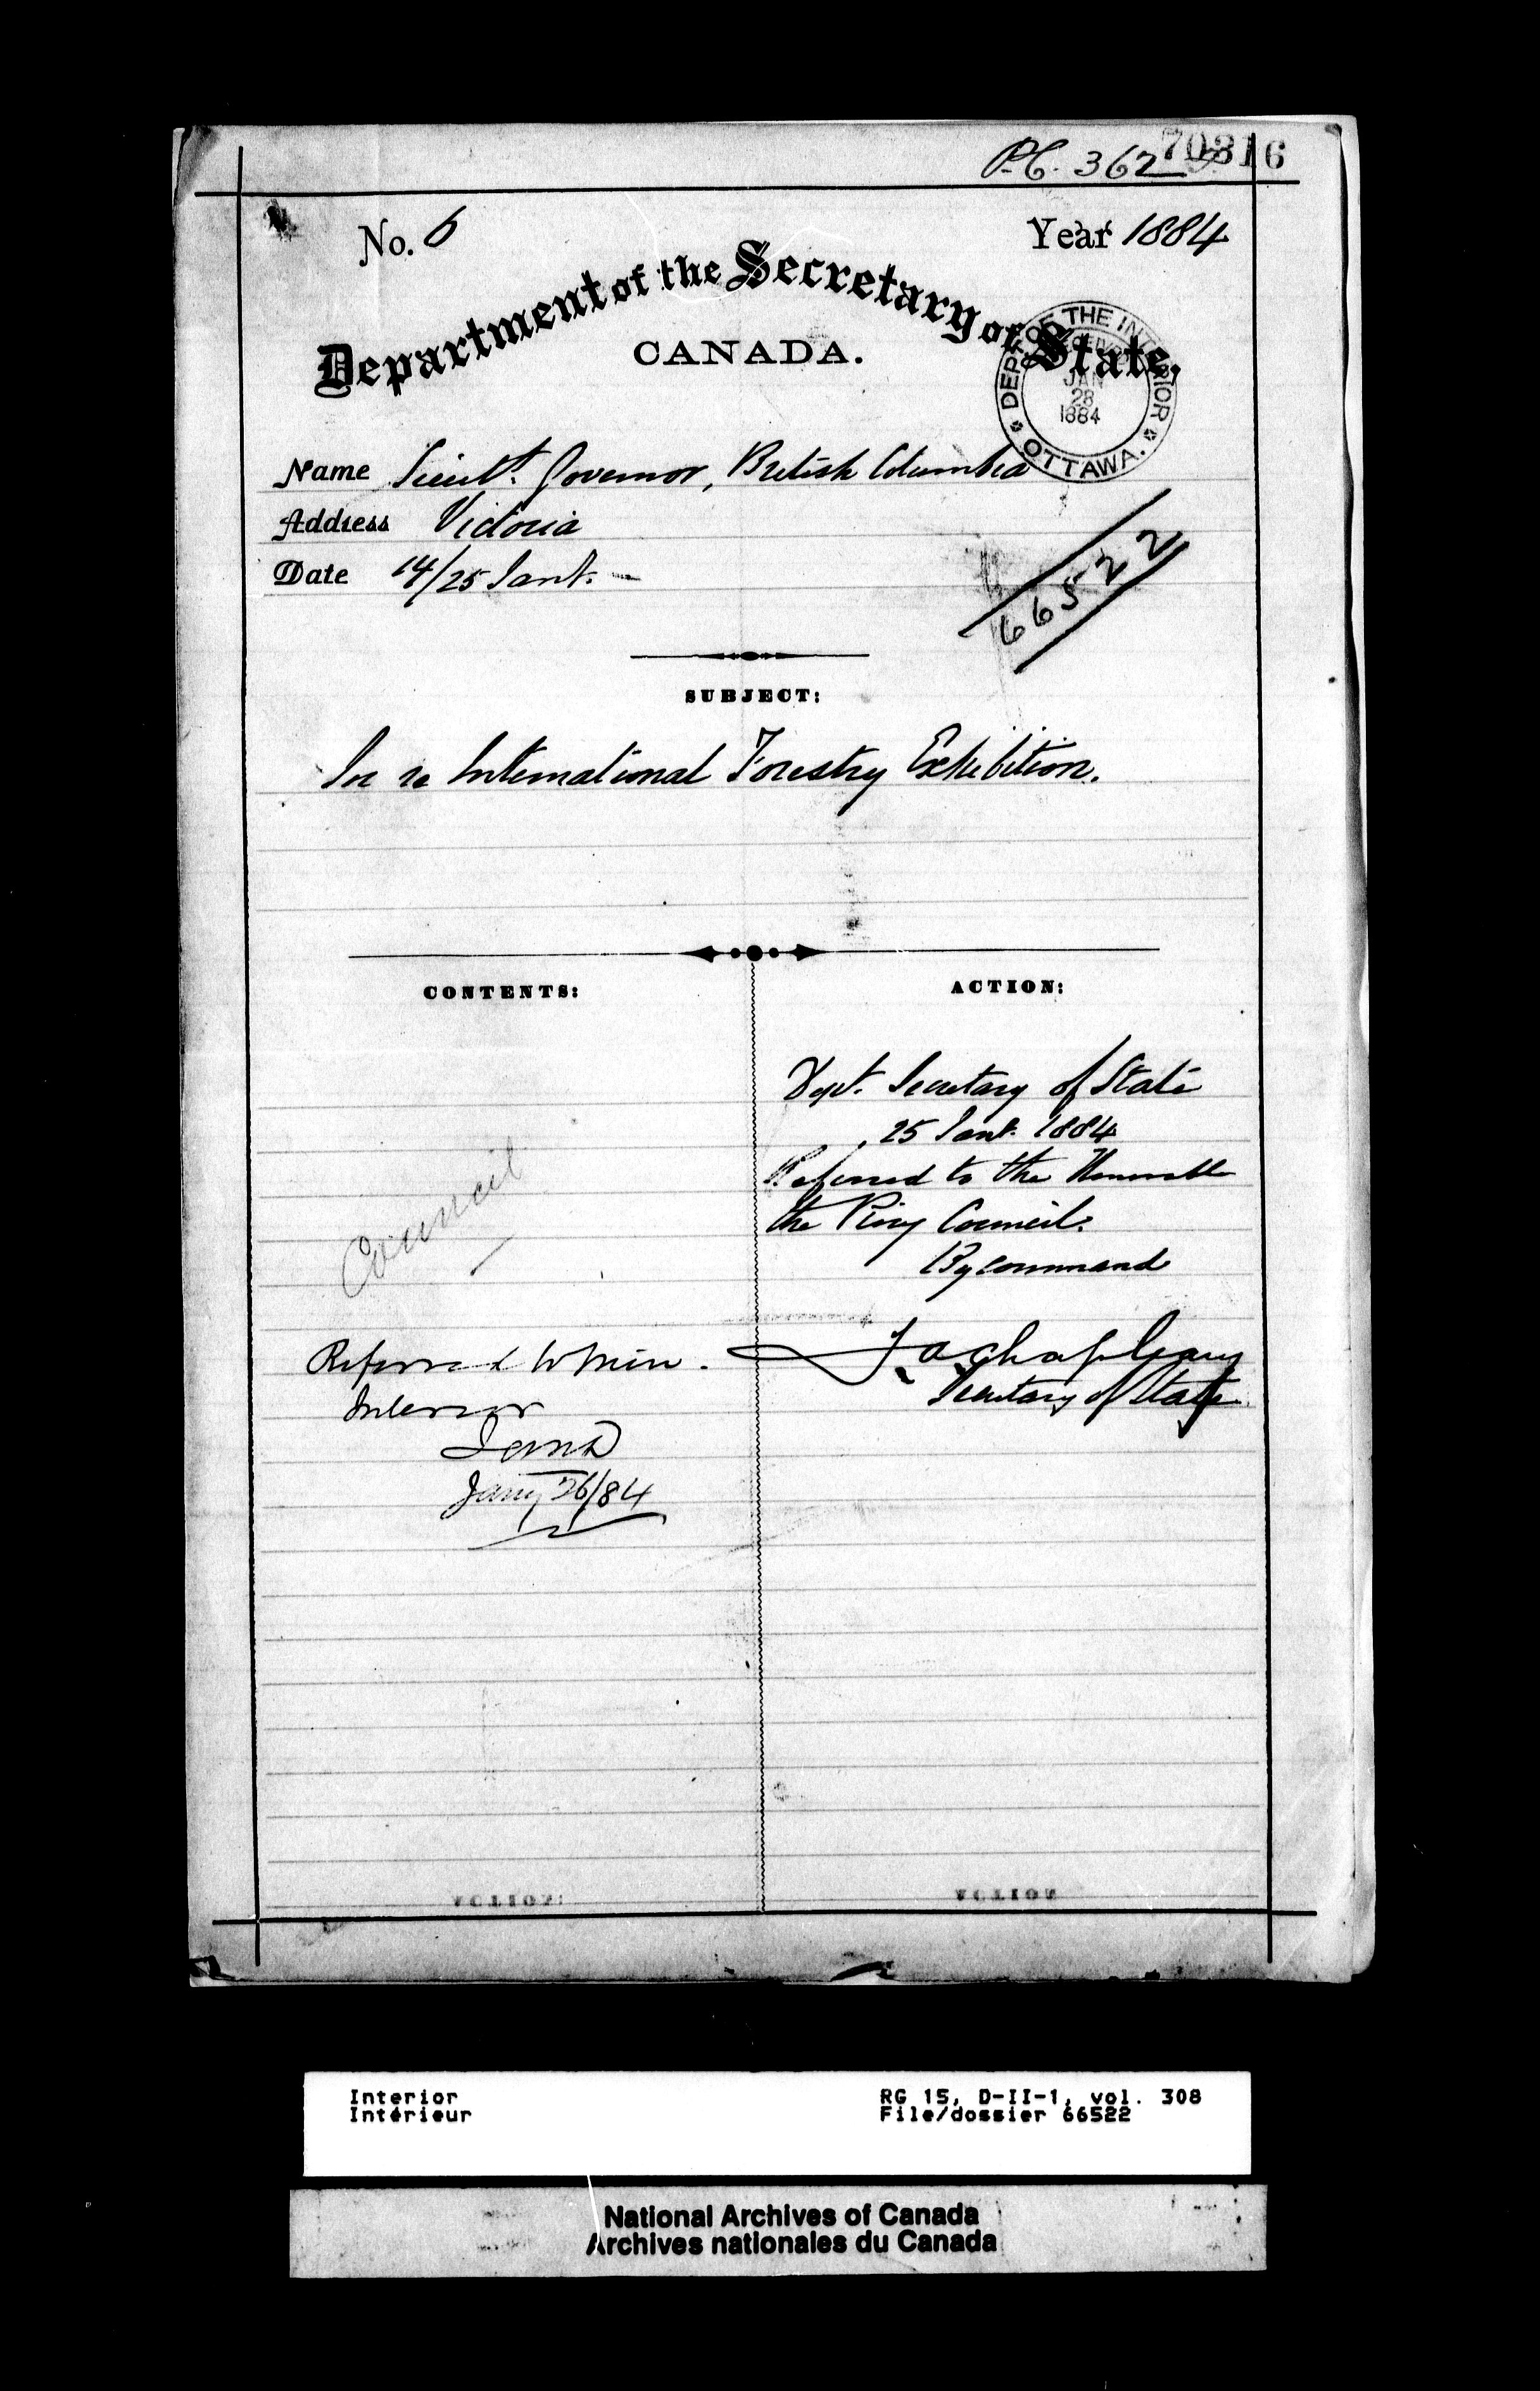 P.C. 362
70316
No. 6
Year 1884
Department of the Secretary of State,
CANADA.
DEPT. OF THE INTERIOR
RECEIVED
JAN
28
1884
OTTAWA.
Name Lieut. Governor, British Columbia
Address Victoria
Date 14/25 Jany.
66522
SUBJECT:
In re International Forestry Exhibition.
CONTENTS:
ACTION:
Dept. Secretary of State
25 Jany. 1884
Referred to the Honorable
the Privy Council.
By command
J. A. Chapleau
Secretary of State
Council
Referred to Min.
Interior
Jany 26/84
Interior
Intérieur
RG 15, D-II-1, vol. 308
File/dossier 66522
National Archives of Canada
Archives nationales du Canada